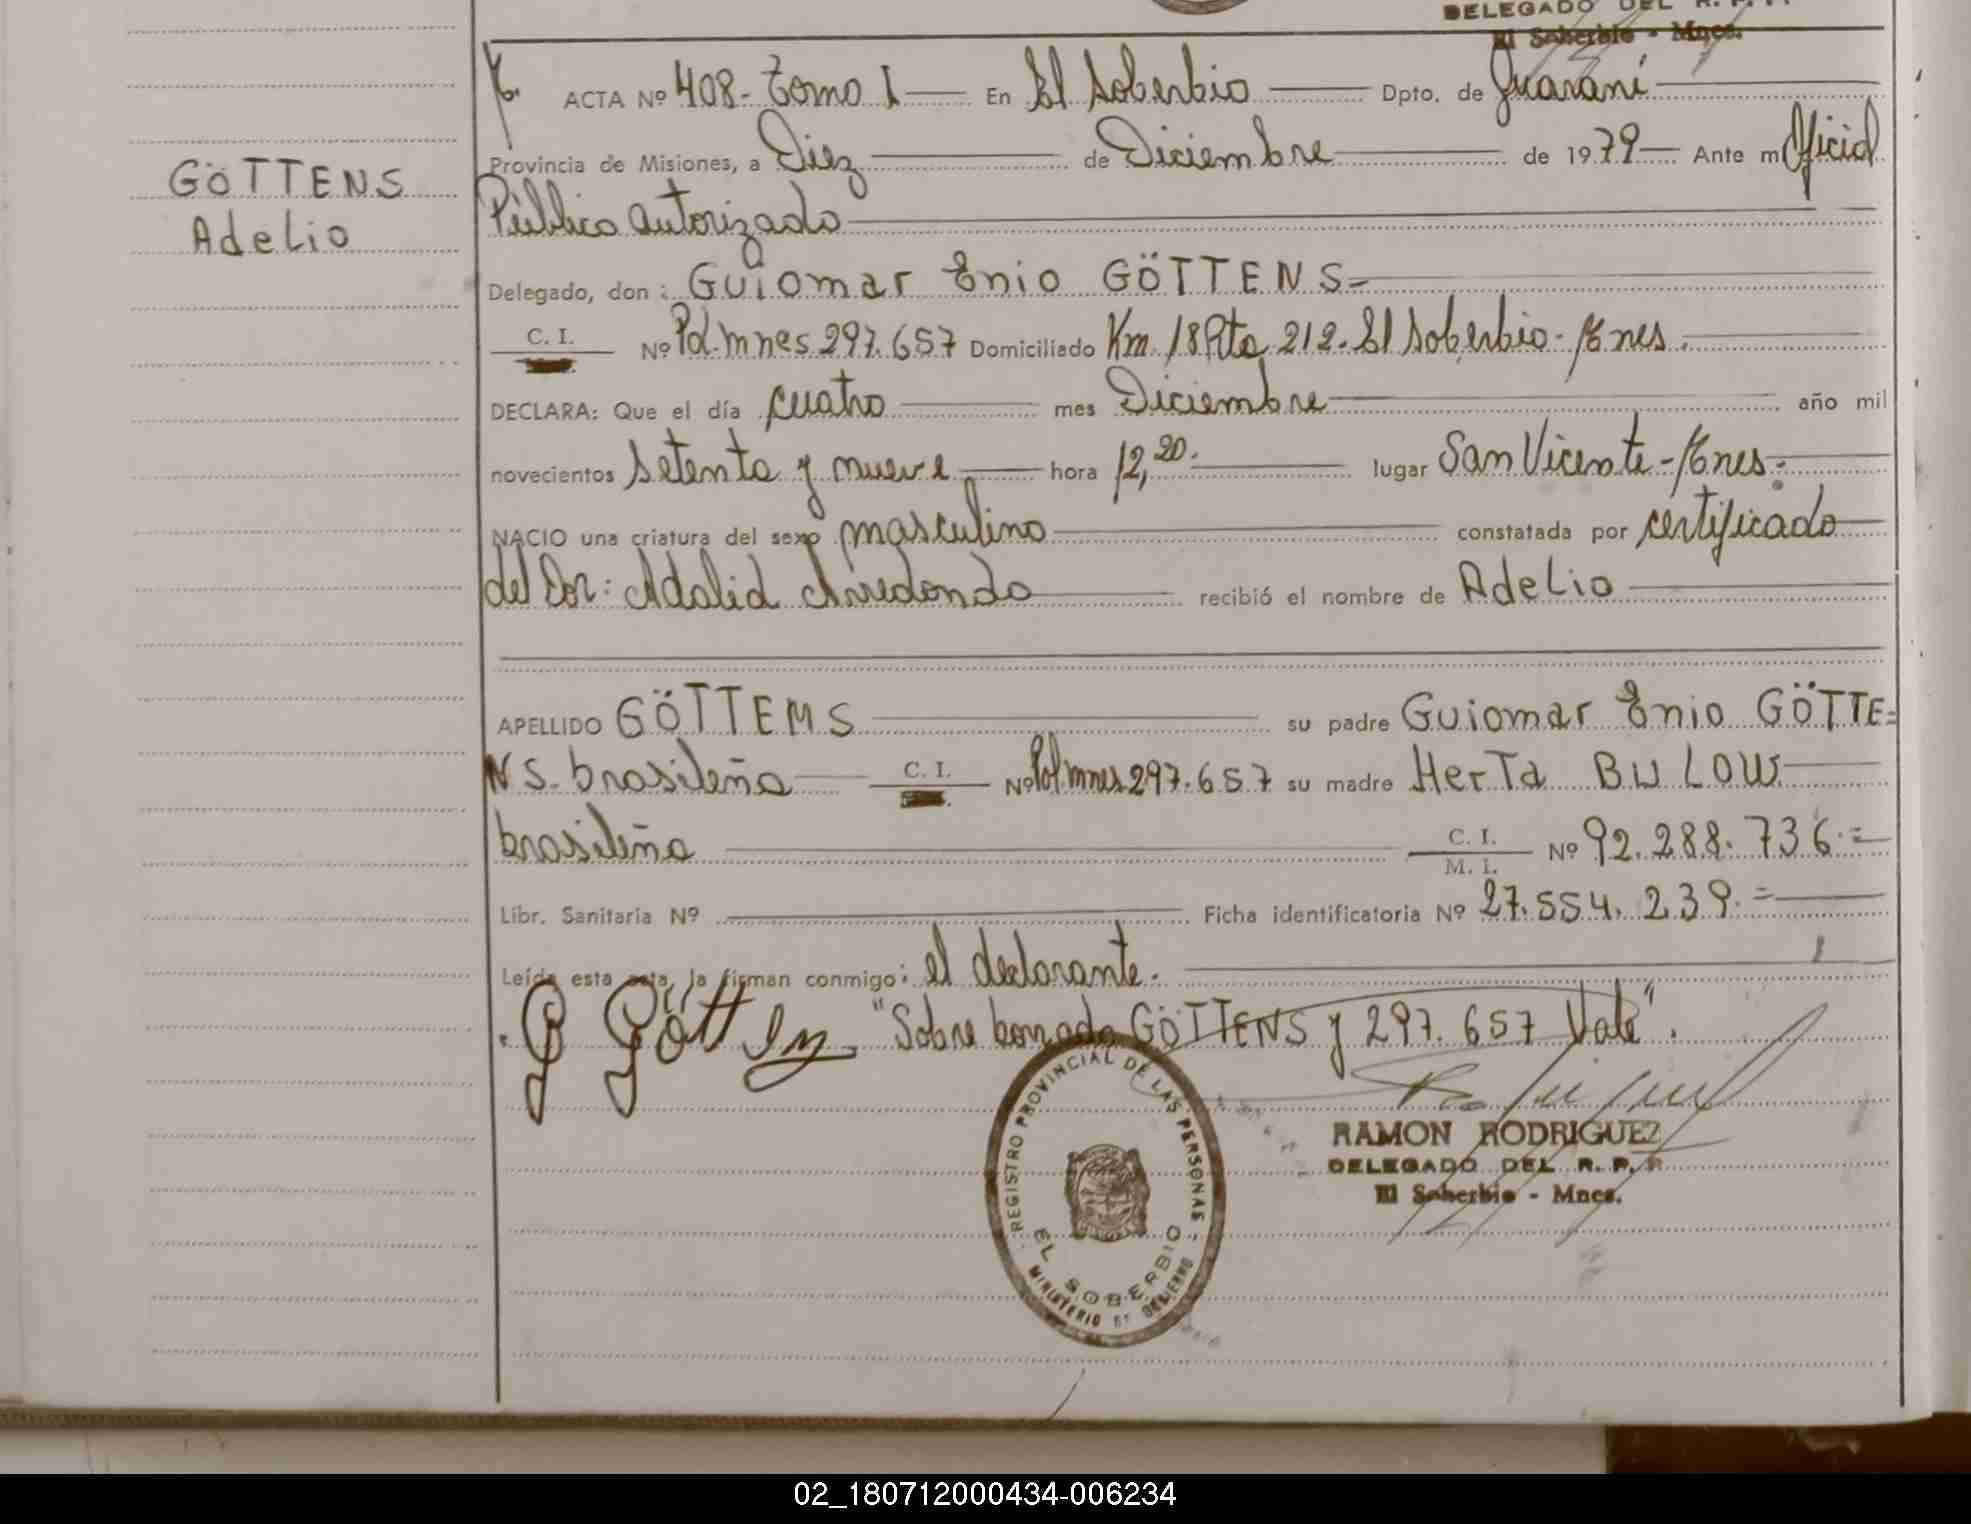 DELEGADO DEL R. P. P.
El Soberbio - Mnes.
GÖTTENS
Adelio
ACTA Nº 408- Tomo I En El Soberbio Dpto. de Guaraní
Provincia de Misiones, a Diez de Diciembre de 1979 Ante mi Oficial
Público Autorizado
Delegado, don: Guiomar Enio GÖTTENS=
C. I. Nº Pol. mnes 297.657 Domiciliado Km. 18 Rta 212. El Soberbio - Mnes.
DECLARA: Que el día cuatro mes Diciembre año mil
novecientos setenta y nueve hora 12,20. lugar San Vicente - Mnes.
NACIO una criatura del sexo masculino constatada por certificado
del Dor: Adalid Arredondo recibió el nombre de Adelio
APELLIDO GÖTTEMS su padre Guiomar Enio GÖTTE=
NS. brasileña C. I. Nº Pol mnes 297.657 su madre Herta BULOW
brasileña C. I. M. I. Nº 92.288.736.=
Libr. Sanitaria Nº Ficha identificatoria Nº 27.554.239.=
Leída esta acta, la firman conmigo: el declarante.
G Götten "Sobre borrado GÖTTENS y 297.657 Vale".
REGISTRO PROVINCIAL DE LAS PERSONAS
EL SOBERBIO
MINISTERIO DE GOBIERNO
RAMON RODRIGUEZ
DELEGADO DEL R. P. P.
El Soberbio - Mnes.
02_180712000434-006234